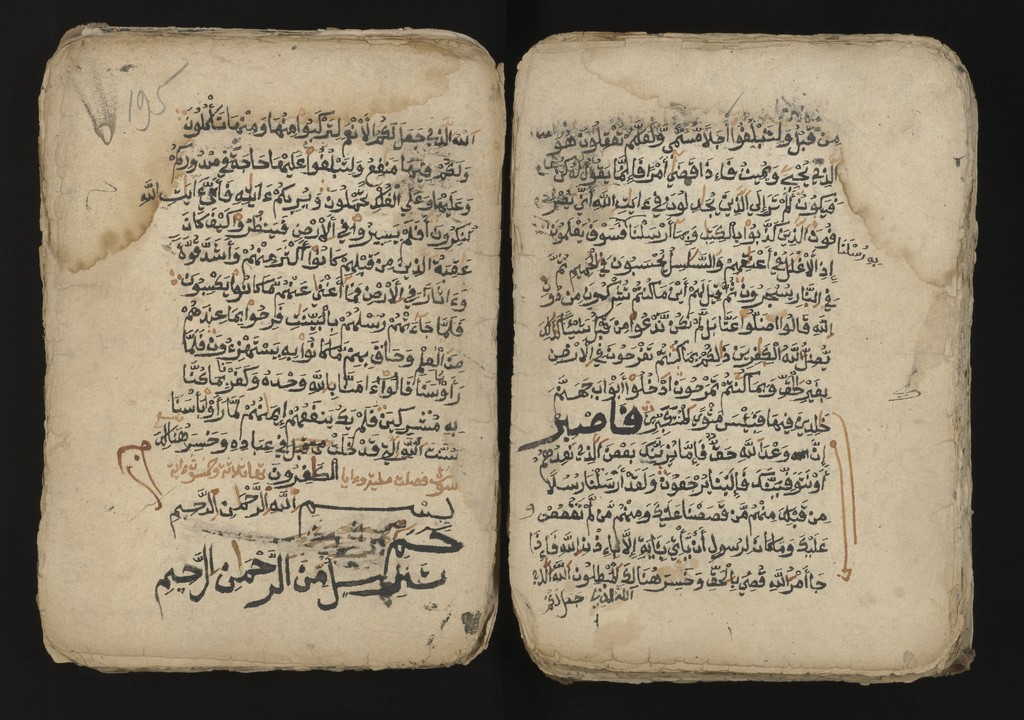 مِن قَبْلُ وَلِتَبْلُغُوا أَجَلًا مُسَمًّى وَلَعَلَّكُمْ تَعْقِلُونَ هُوَ
الَّذِي يُحْيِي وَيُمِيتُ فَإِذَا قَضَى أَمْرًا فَإِنَّمَا يَقُولُ لَهُ كُن
فَيَكُونُ أَلَمْ تَرَ إِلَى الَّذِينَ يُجَادِلُونَ فِي ءَايَاتِ اللَّهِ أَنَّى يُصْرَ
فُونَ الَّذِينَ كَذَّبُوا بِالْكِتَابِ وَبِمَا أَرْسَلْنَا فَسَوْفَ يَعْلَمُونَ
بِهِ رُسُلَنَا
إِذِ الْأَغْلَالُ فِي أَعْنَاقِهِمْ وَالسَّلَاسِلُ يُسْحَبُونَ فِي الْحَمِيمِ ثُمَّ
فِي النَّارِ يُسْجَرُونَ ثُمَّ قِيلَ لَهُمْ أَيْنَ مَا كُنتُمْ تُشْرِكُونَ مِن دُونِ
اللَّهِ قَالُوا ضَلُّوا عَنَّا بَل لَّمْ نَكُن نَّدْعُوا مِن قَبْلُ شَيْئًا كَذَلِكَ
يُضِلُّ اللَّهُ الْكَافِرِينَ ذَلِكُم بِمَا كُنتُمْ تَفْرَحُونَ فِي الْأَرْضِ
بِغَيْرِ الْحَقِّ وَبِمَا كُنتُمْ تَمْرَحُونَ ادْخُلُوا أَبْوَابَ جَهَنَّمَ
خَالِدِينَ فِيهَا فَبِئْسَ مَثْوَى الْمُتَكَبِّرِينَ فَاصْبِرْ
إِنَّ وَعْدَ اللَّهِ حَقٌّ فَإِمَّا نُرِيَنَّكَ بَعْضَ الَّذِي نَعِدُهُمْ
أَوْ نَتَوَفَّيَنَّكَ فَإِلَيْنَا يُرْجَعُونَ وَلَقَدْ أَرْسَلْنَا رُسُلًا
مِن قَبْلِكَ مِنْهُم مَّن قَصَصْنَا عَلَيْكَ وَمِنْهُم مَّن لَّمْ نَقْصُصْ
عَلَيْكَ وَمَا كَانَ لِرَسُولٍ أَن يَأْتِيَ بِـَٔايَةٍ إِلَّا بِإِذْنِ اللَّهِ فَإِذَا
جَا أَمْرُ اللَّهِ قُضِيَ بِالْحَقِّ وَخَسِرَ هُنَالِكَ الْمُبْطِلُونَ اللَّهُ الَّذِي
اللَّهُ الَّذِي جَعَلَ لَكُمُ
195
اللَّهُ الَّذِي جَعَلَ لَكُمُ الْأَنْعَامَ لِتَرْكَبُوا مِنْهَا وَمِنْهَا تَأْكُلُونَ
وَلَكُمْ فِيهَا مَنَافِعُ وَلِتَبْلُغُوا عَلَيْهَا حَاجَةً فِي صُدُورِكُمْ
وَعَلَيْهَا وَعَلَى الْفُلْكِ تُحْمَلُونَ وَيُرِيكُمْ ءَايَاتِهِ فَأَيَّ ءَايَاتِ اللَّهِ
تُنكِرُونَ أَفَلَمْ يَسِيرُوا فِي الْأَرْضِ فَيَنظُرُوا كَيْفَ كَانَ
عَاقِبَةُ الَّذِينَ مِن قَبْلِهِمْ كَانُوا أَكْثَرَ مِنْهُمْ وَأَشَدَّ قُوَّةً
وَءَاثَارًا فِي الْأَرْضِ فَمَا أَغْنَى عَنْهُم مَّا كَانُوا يَكْسِبُونَ
فَلَمَّا جَاءَتْهُمْ رُسُلُهُم بِالْبَيِّنَاتِ فَرِحُوا بِمَا عِندَهُم
مِّنَ الْعِلْمِ وَحَاقَ بِهِم مَّا كَانُوا بِهِ يَسْتَهْزِءُونَ فَلَمَّا
رَأَوْا بَأْسَنَا قَالُوا ءَامَنَّا بِاللَّهِ وَحْدَهُ وَكَفَرْنَا بِمَا كُنَّا
بِهِ مُشْرِكِينَ فَلَمْ يَكُ يَنفَعُهُمْ إِيمَانُهُمْ لَمَّا رَأَوْا بَأْسَنَا
سُنَّتَ اللَّهِ الَّتِي قَدْ خَلَتْ فِي عِبَادِهِ وَخَسِرَ هُنَالِكَ
الْكَافِرُونَ سورة فصلت مكية
بِسْمِ اللَّهِ الرَّحْمَنِ الرَّحِيمِ
حم
تَنزِيلٌ مِّنَ الرَّحْمَنِ الرَّحِيمِ